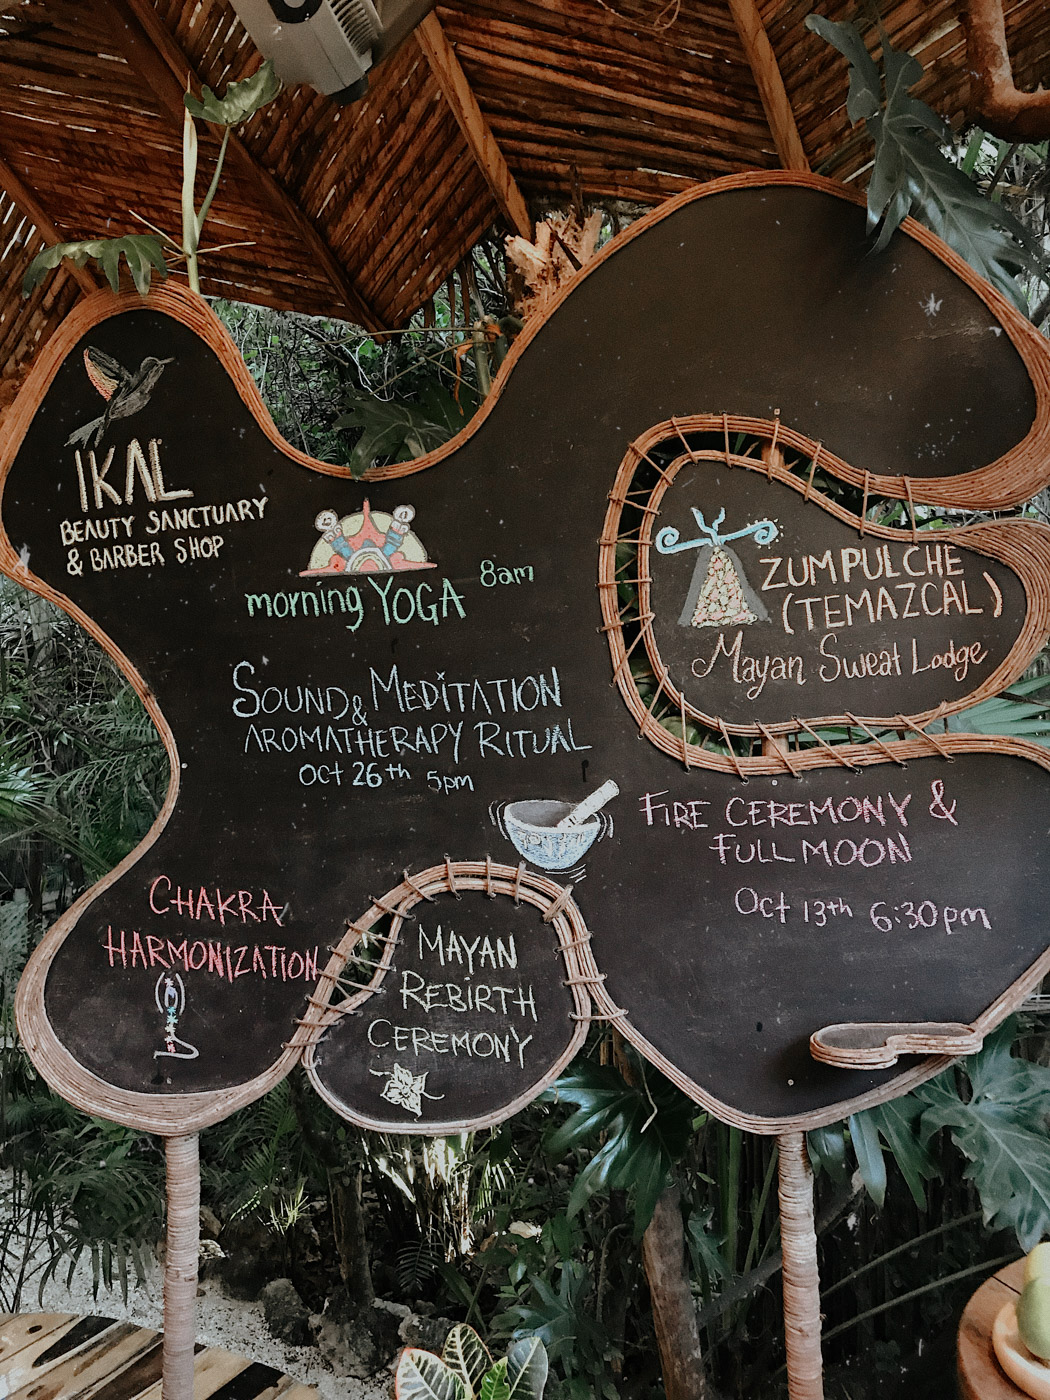 IKAL
BEAUTY SANCTUARY
& BARBER SHOP
morning YOGA 8am
SOUND & MEDITATION
AROMATHERAPY RITUAL
Oct 26th 5pm
CHAKRA
HARMONIZATION
MAYAN
REBIRTH
CEREMONY
ZUMPULCHE
(TEMAZCAL)
Mayan Sweat Lodge
FIRE CEREMONY &
FULL MOON
Oct 13th 6:30pm